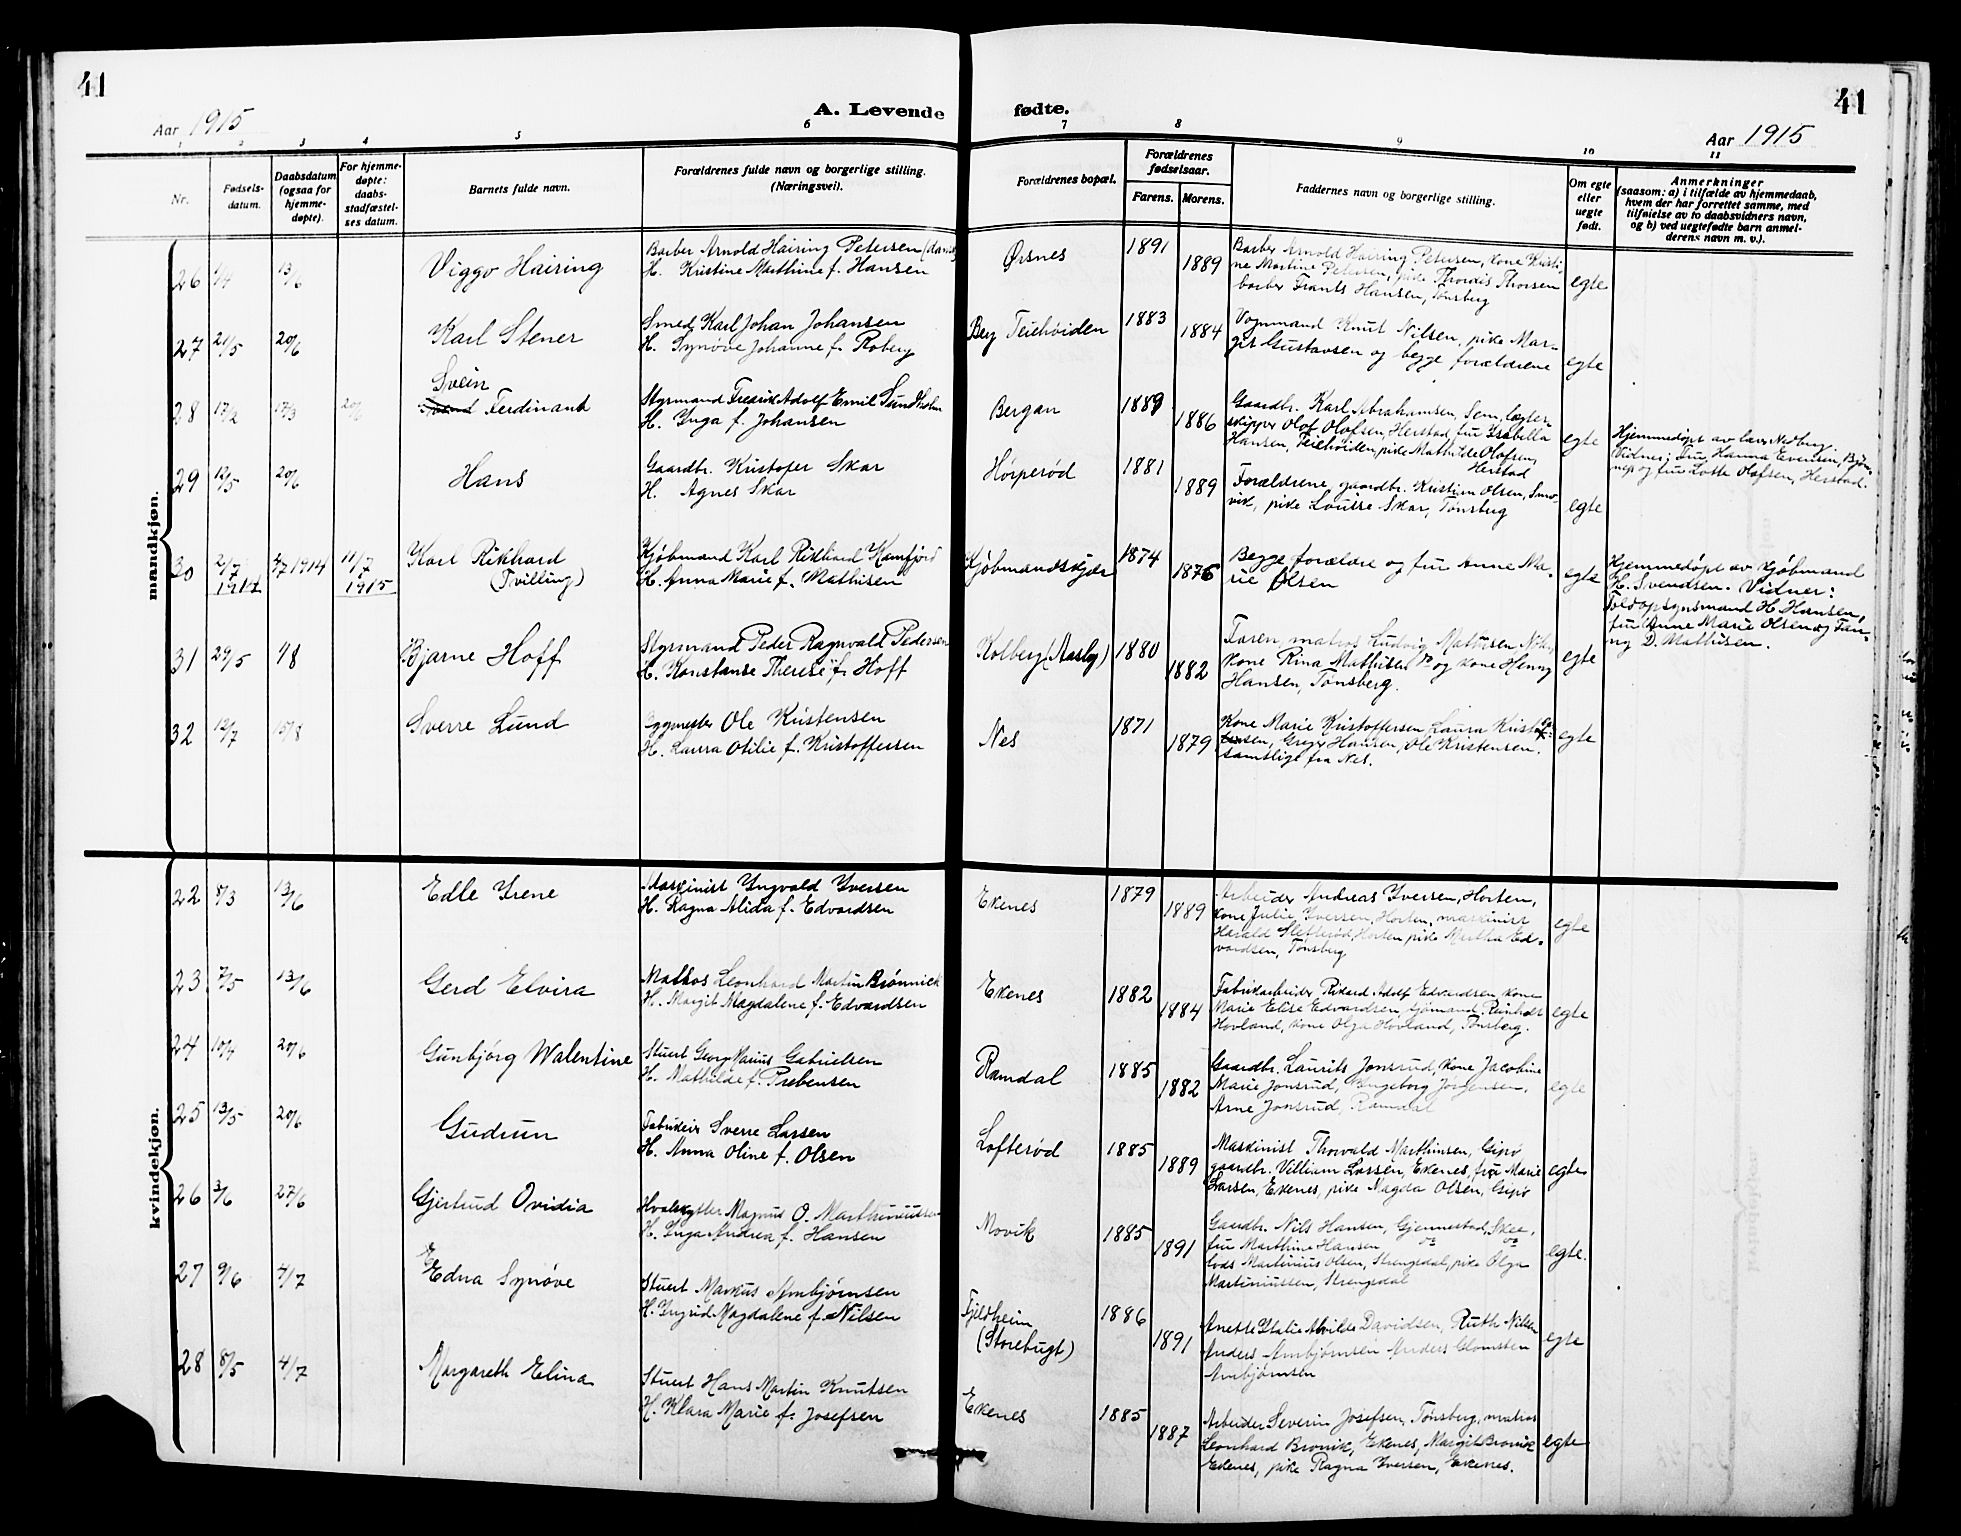 41
41
Aar 1915
A. Levende
fødte.
Aar 1915
1 2 3 4 5 6 7 8 9 10 11
Nr.
Fødsels-
datum.
Daabsdatum
(ogsaa for
hjemme-
døpte).
For hjemme-
døpte:
daabs-
stadfæstel-
ses datum.
Barnets fulde navn.
Forældrenes fulde navn og borgerlige stilling.
(Næringsvei).
Forældrenes bopæl.
Forældrenes
fødselsaar.
Farens. Morens.
Faddernes navn og borgerlige stilling.
Om egte
eller
uegte
født.
Anmerkninger
(saasom: a) i tilfælde av hjemmedaab,
hvem der har forrettet samme, med
tilføielse av to daabsvidners navn,
og b) ved uegtefødte barn anmel-
derens navn m. v.).
mandkjøn.
26 1/4 13/6
Viggo Hairing
Barber Arnold Hairing Petersen (dansk)
H. Kristine Marthine f. Hansen
Ørsnes
1891
1889
Barber Arnold Hairing Petersen, kone Kristi-
ne Martine Petersen, pike Thordis Thorsen
barber Frants Hansen, Tønsberg
egte
27 21/5 20/6
Karl Stener
Smed Karl Johan Johansen
H. Synøve Johanne f. Roberg
Berg Teiehøiden
1883
1884
Vognmand Knut Nilsen, pike Mar-
git Gustavsen og begge forældrene
egte
28 17/2 17/3 20/6
Svein
Svend Ferdinand
Styrmand Fredrik Adolf Emil Sundholm
H. Ynga f. Johansen
Bergan
1889
1886
Gaardbr. Karl Abrahamsen, Sem, lægter-
skipper Olof Olofsen, Herstad, fru Ysabella
Hansen, Teiehøiden, pike Mathilde Olofsen,
Herstad
egte
Hjemmedøpt av Nedberg
Vidner: Fru Hanna Evensen,
og fru Lotte Olofsen, Herstad.
29 12/5 20/6
Hans
Gaardbr. Kristofer Skar
H. Agnes Skar
Hørperød
1881
1889
Forældrene, gaardbr. Kristian Olsen,
vik, pike Louise Skar, Tønsberg
egte
30 2/7 1914 2/7 1914 11/7 1915
Karl Rikhard
(Tvilling)
Kjøbmand Karl Rikhard Kamfjord
H. Anna Marie f. Mathisen
Kjøbmandskjær
1874
1876
Begge forældre og fru Anne Ma-
rie Olsen
egte
Hjemmedøpt av Kjøbmand
H. Svendsen. Vidner:
Toldopsynsmand H. Hansen,
fru Anne Marie Olsen og Fan-
ny D. Mathisen.
31 29/5 1/8
Bjarne Hoff
Styrmand Peder Ragnvald Pedersen
H. Konstanse Therese f. Hoff
Kolberg (Aasly)
1880
1882
Faren, matros Ludvig Mathisen
kone Rina Mathisen og kone Henny
Hansen, Tønsberg.
egte
32 12/7 15/8
Sverre Lund
Byggmester Ole Kristensen
H. Laura Otilie f. Kristoffersen
Nes
1871
1879
Kone Marie Kristoffersen, Laura Kristof-
fersen, Greger Hansen, Ole Kristensen.
samtlige fra Nes.
egte
kvindekjøn.
22 8/3 13/6
Edle Yrene
Maskinist Yngvald Yversen
H. Ragna Alida f. Edvardsen
Ekenes
1879
1889
Arbeider Andreas Yversen, Horten,
kone Julie Yversen, Horten, maskinist
Harald Sletterød, Horten, pike Martha Ed-
vardsen, Tønsberg
egte
23 7/5 13/6
Gerd Elvira
Matros Leonhard Martin Brønnick
H. Margit Magdalene f. Edvardsen
Ekenes
1882
1884
Fabrikarbeider Rikard Adolf Edvardsen, kone
Marie Elise Edvardsen, sjømand Reinholt
Hovland, kone Olga Hovland, Tønsberg.
egte
24 10/4 20/6
Gunbjørg Walentine
Stuert Georg Marius Gabrielsen
H. Mathilde f. Prebensen
Ramdal
1885
1882
Gaardbr. Laurits Jonsrud, kone Jacobine
Marie Jonsrud, Yngeborg Jørgensen,
Arne Jonsrud, Ramdal
egte
25 13/5 20/6
Gudrun
Fabrikeier Sverre Larsen
H. Anna Oline f. Olsen
Lofterød
1885
1889
Maskinist Thorvald Marthinsen, Gipø
gaardbr. Villiam Larsen, Ekenes, fru Marie
Larsen, Ekenes, pike Magda Olsen, Gipø
egte
26 3/6 27/6
Gjertrud Ovidia
Hvalskytter Magnus O. Marthiniussen
H. Ynga Andrea f. Hansen
Movik
1885
1891
Gaardbr. Nils Hansen, Gjennestad, Skee,
fru Marthine Hansen
lods Martinius Olsen, Strengsdal, pike Olga
Martiniussen, Strengsdal
egte.
27 9/6 4/7
Edna Synøve
Stuert Markus Arnbjørnsen
H. Yngrid Magdalene f. Nilsen
Fjeldheim
(Storebugt)
1886
1891
Anette Ytalie Alvilde Davidsen, Ruth Nilsen
Anders Arnbjørnsen Anders Glomsten
Arnbjørnsen
egte
28 8/5 4/7
Margareth Elina
Stuert Hans Martin Knutsen
H. Klara Marie f. Josefsen
Ekenes
1885
1887
Arbeider Severin Josefsen, Tønsberg, matros
Leonhard Bronik, Ekenes, Margit Bronik
Ekenes, pike Ragna Yversen, Ekenes.
egte